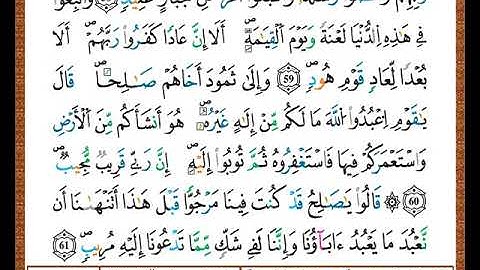 فِي هَٰذِهِ اِ۬لدُّنْيَا لَعْنَةٗ وَيَوْمَ اَ۬لْقِيَٰمَةِۖ أَلَا إِنَّ عَادٗا كَفَرُواْ رَبَّهُمْۖ أَلَا
بُعْدٗا لِّعَادٖ قَوْمِ هُودٖۖ 59 وَإِلَىٰ ثَمُودَ أَخَاهُمْ صَٰلِحٗاۖ قَالَ
يَٰقَوْمِ اِ۟عْبُدُواْ اُ۬للَّهَ مَا لَكُم مِّنْ إِلَٰهٍ غَيْرُهُۥۖ هُوَ أَنشَأَكُم مِّنَ اَ۬لْأَرْضِ
وَاسْتَعْمَرَكُمْ فِيهَا فَاسْتَغْفِرُوهُ ثُمَّ تُوبُواْ إِلَيْهِۖ إِنَّ رَبِّي قَرِيبٞ مُّجِيبٞۖ
60 قَالُواْ يَٰصَٰلِحُ قَدْ كُنتَ فِينَا مَرْجُوّٗا قَبْلَ هَٰذَا أَتَنْهَىٰنَا أَن
نَّعْبُدَ مَا يَعْبُدُ ءَابَآؤُنَا وَإِنَّنَا لَفِي شَكّٖ مِّمَّا تَدْعُونَا إِلَيْهِ مُرِيبٖۖ 61